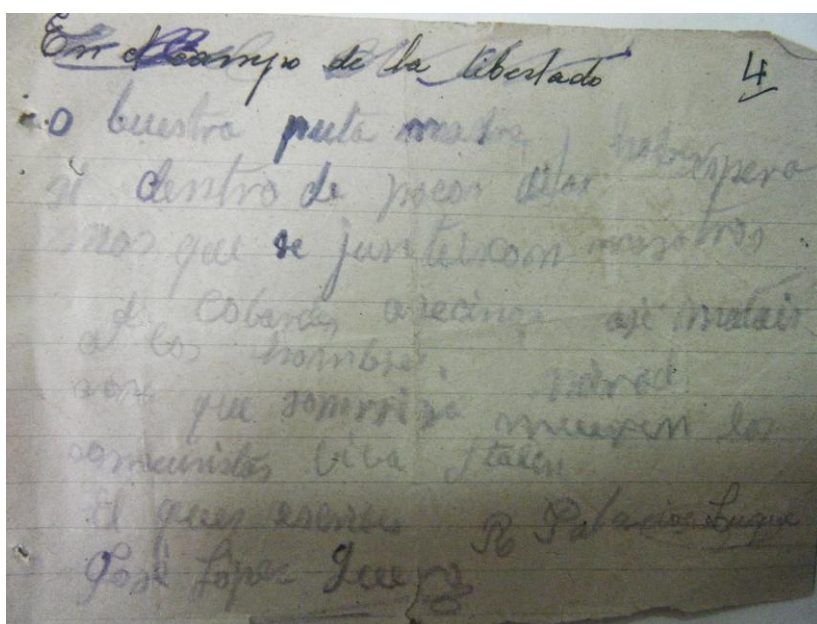 En el Campo de la libertado 4
o buestra puta madre, espero
dentro de pocos dias
mos que se junteis con nosotros
Cobardes asecinos asi matais
a los hombres. mirad
con que sonrriza mueren los
comunistas biba Stalin
El que escribe R Palacios Luque
José López Quero